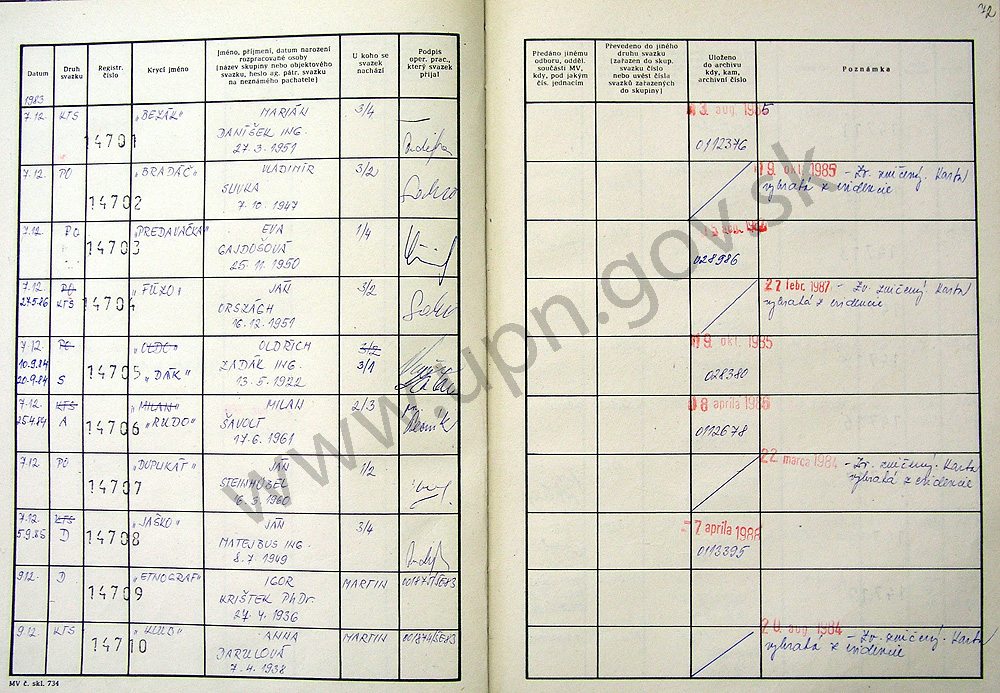 72
Datum
Druh svazku
Registr. číslo
Krycí jméno
Jméno, příjmení, datum narození
rozpracované osoby
(název skupiny nebo objektového
svazku, heslo ag. pátr. svazku
na neznámého pachatele)
U koho se
svazek
nachází
Podpis
oper. prac.,
který svazek
přijal
Předáno jinému
odboru, odděl.
součásti MV,
kdy, pod jakým
čís. jednacím
Převedeno do jiného
druhu svazku
(zařazen do skup.
svazku číslo
nebo uvést čísla
svazků zařazených
do skupiny)
Uloženo
do archivu
kdy, kam,
archivní číslo
Poznámka
1983
7.12. KTS 14701 „BEZÁK" MARIÁN 3/4
DANÍŠEK ING.
27.3.1951
3. aug. 1985
0112376
7.12. PO 14702 „BRADÁČ" VLADIMÍR 3/2
SLIVKA
7.10.1947
19. okt. 1985 - Zv. zničený. Karta
vybratá z evidencie
7.12. PO 14703 „PREDAVAČKA" EVA 1/4
GAJDUŠOVÁ
25.11.1950
028986
7.12. PO 14704 JÁN 3/2
27.5.86 KTS ORSZÁGH
16.12.1951
27 febr. 1987 - Zv. zničený Karta
vybratá z evidencie
7.12. PO 14705 OLDŘICH 3/2
10.9.84 „DÁK" ZADÁK ING. 3/1
20.9.84 S 13.5.1922
19. okt. 1985
028380
7.12. KTS 14706 „MILAN" MILAN 2/3
25.4.84 A „RUDO" ŠAVOLT
17.6.1961
8 apríla 1986
0112678
7.12 PO 14707 „DUPLIKÁT" JÁN 1/2
STEINHÜBEL
6.3.1960
22 marca 1984 - Zv. zničený. Karta
vybratá z evidencie
7.12. KTS 14708 „JAŠKO" JÁN 3/4
5.9.85 D MATEJBUS ING.
8.7.1949
7 apríla 1986
0113395
9.12. D 14709 „ETNOGRAF" IGOR MARTIN
KRIŠTEK PhDr.
27.4.1936
9.12. KTS 14710 ANNA MARTIN
DARULOVÁ
7.4.1938
20. aug. 1984 - Zv. zničený. Karta
vybratá z evidencie
MV č. skl. 734
www.upn.gov.sk